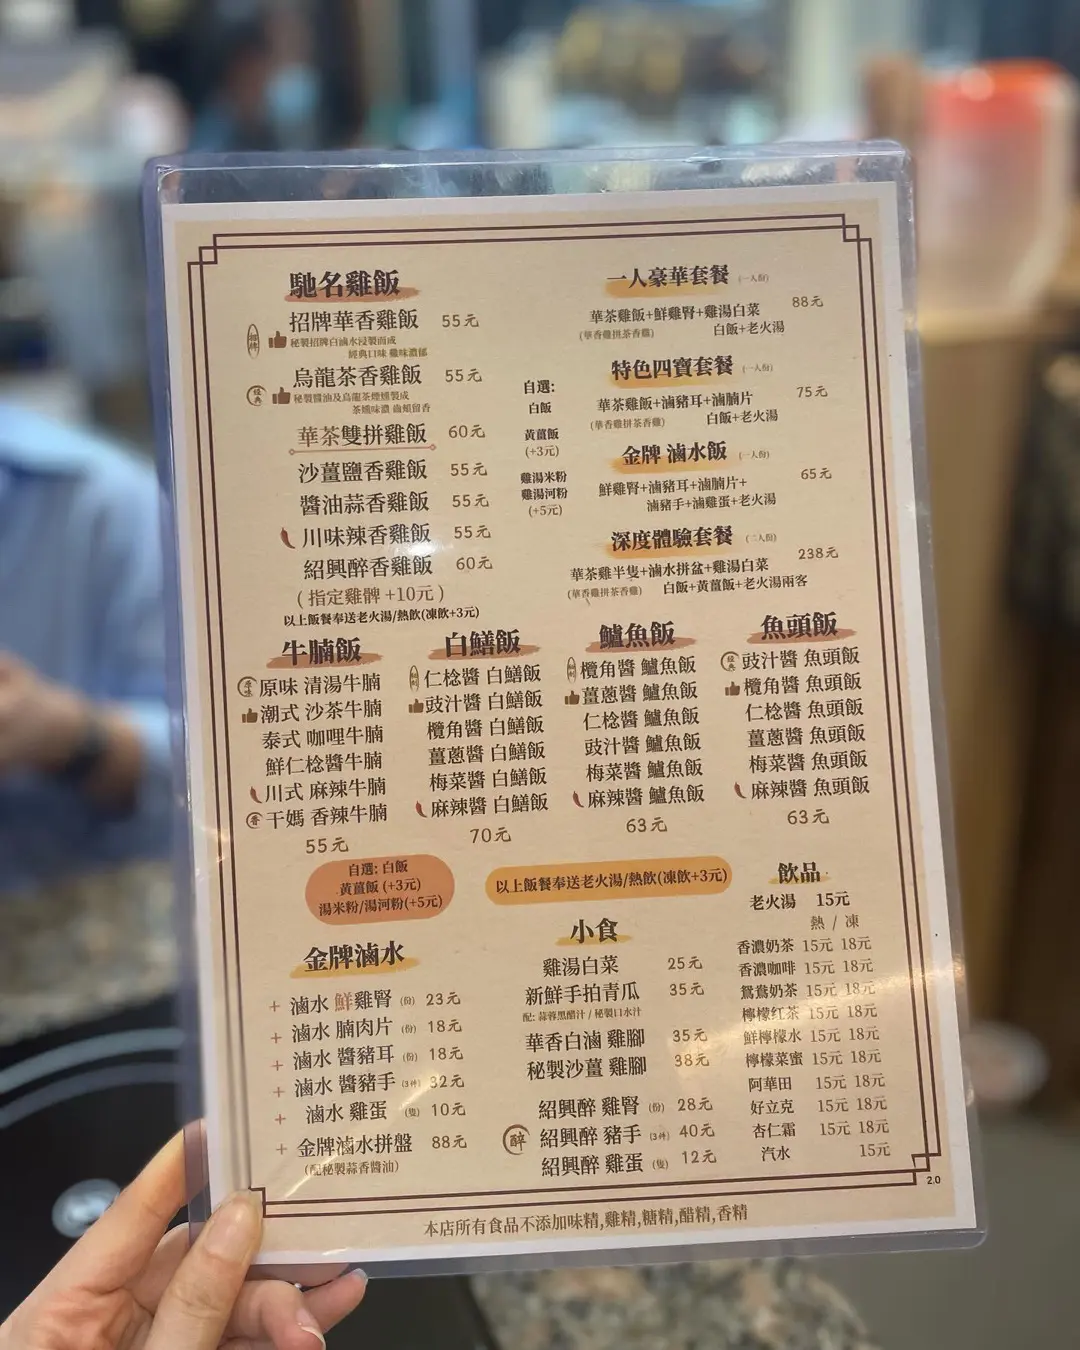 馳名雞飯
招牌華香雞飯 55元
招牌
秘製招牌白滷水浸製而成
經典口味 雞味濃郁
烏龍茶香雞飯 55元
經典
秘製醬油及烏龍茶煙燻製成
茶燻味濃 齒頰留香
華茶雙拼雞飯 60元
沙薑鹽香雞飯 55元
醬油蒜香雞飯 55元
川味辣香雞飯 55元
紹興醉香雞飯 60元
(指定雞髀 +10元)
以上飯餐奉送老火湯/熱飲(凍飲+3元)
自選:
白飯
黃薑飯
(+3元)
雞湯米粉
雞湯河粉
(+5元)
一人豪華套餐 (一人份)
88元
華茶雞飯+鮮雞腎+雞湯白菜
(華香雞拼茶香雞) 白飯+老火湯
特色四寶套餐 (一人份)
75元
華茶雞飯+滷豬耳+滷腩片
(華香雞拼茶香雞) 白飯+老火湯
金牌 滷水飯 (一人份)
65元
鮮雞腎+滷豬耳+滷腩片+
滷豬手+滷雞蛋+老火湯
深度體驗套餐 (二人份)
238元
華茶雞半隻+滷水拼盆+雞湯白菜
(華香雞拼茶香雞) 白飯+黃薑飯+老火湯兩客
牛腩飯
原味 清湯牛腩
潮式 沙茶牛腩
泰式 咖哩牛腩
鮮仁稔醬牛腩
川式 麻辣牛腩
干媽 香辣牛腩
55元
自選: 白飯
黃薑飯 (+3元)
湯米粉/湯河粉(+5元)
白鱔飯
仁稔醬 白鱔飯
豉汁醬 白鱔飯
欖角醬 白鱔飯
薑蔥醬 白鱔飯
梅菜醬 白鱔飯
麻辣醬 白鱔飯
70元
鱸魚飯
欖角醬 鱸魚飯
薑蔥醬 鱸魚飯
仁稔醬 鱸魚飯
豉汁醬 鱸魚飯
梅菜醬 鱸魚飯
麻辣醬 鱸魚飯
63元
魚頭飯
經典
豉汁醬 魚頭飯
欖角醬 魚頭飯
仁稔醬 魚頭飯
薑蔥醬 魚頭飯
梅菜醬 魚頭飯
麻辣醬 魚頭飯
63元
以上飯餐奉送老火湯/熱飲(凍飲+3元)
金牌滷水
+ 滷水 鮮雞腎 (份) 23元
+ 滷水 腩肉片 (份) 18元
+ 滷水 醬豬耳 (份) 18元
+ 滷水 醬豬手 (3件) 32元
+ 滷水 雞蛋 (隻) 10元
+ 金牌滷水拼盤 88元
(配秘製蒜香醬油)
小食
雞湯白菜 25元
新鮮手拍青瓜 35元
配: 蒜蓉黑醋汁 / 秘製口水汁
華香白滷 雞腳 35元
秘製沙薑 雞腳 38元
醉
紹興醉 雞腎 (份) 28元
紹興醉 豬手 (3件) 40元
紹興醉 雞蛋 (隻) 12元
飲品
老火湯 15元
熱 / 凍
香濃奶茶 15元 18元
香濃咖啡 15元 18元
鴛鴦奶茶 15元 18元
檸檬紅茶 15元 18元
鮮檸檬水 15元 18元
檸檬菜蜜 15元 18元
阿華田 15元 18元
好立克 15元 18元
杏仁霜 15元 18元
汽水 15元
2.0
本店所有食品不添加味精,雞精,糖精,醋精,香精